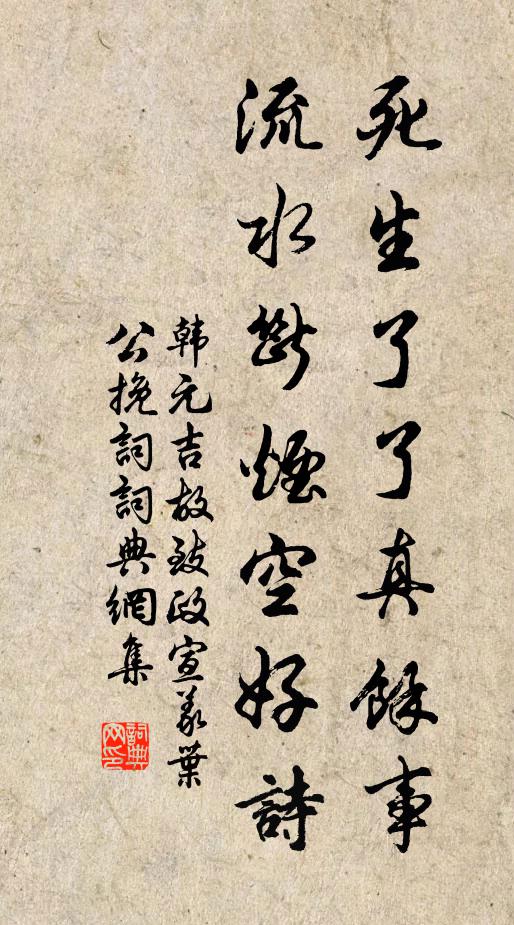 死生了了真餘事
流水斷煙空好詩
韩元吉故致政宣義葉
公挽詞詞典網集
詞典
网印